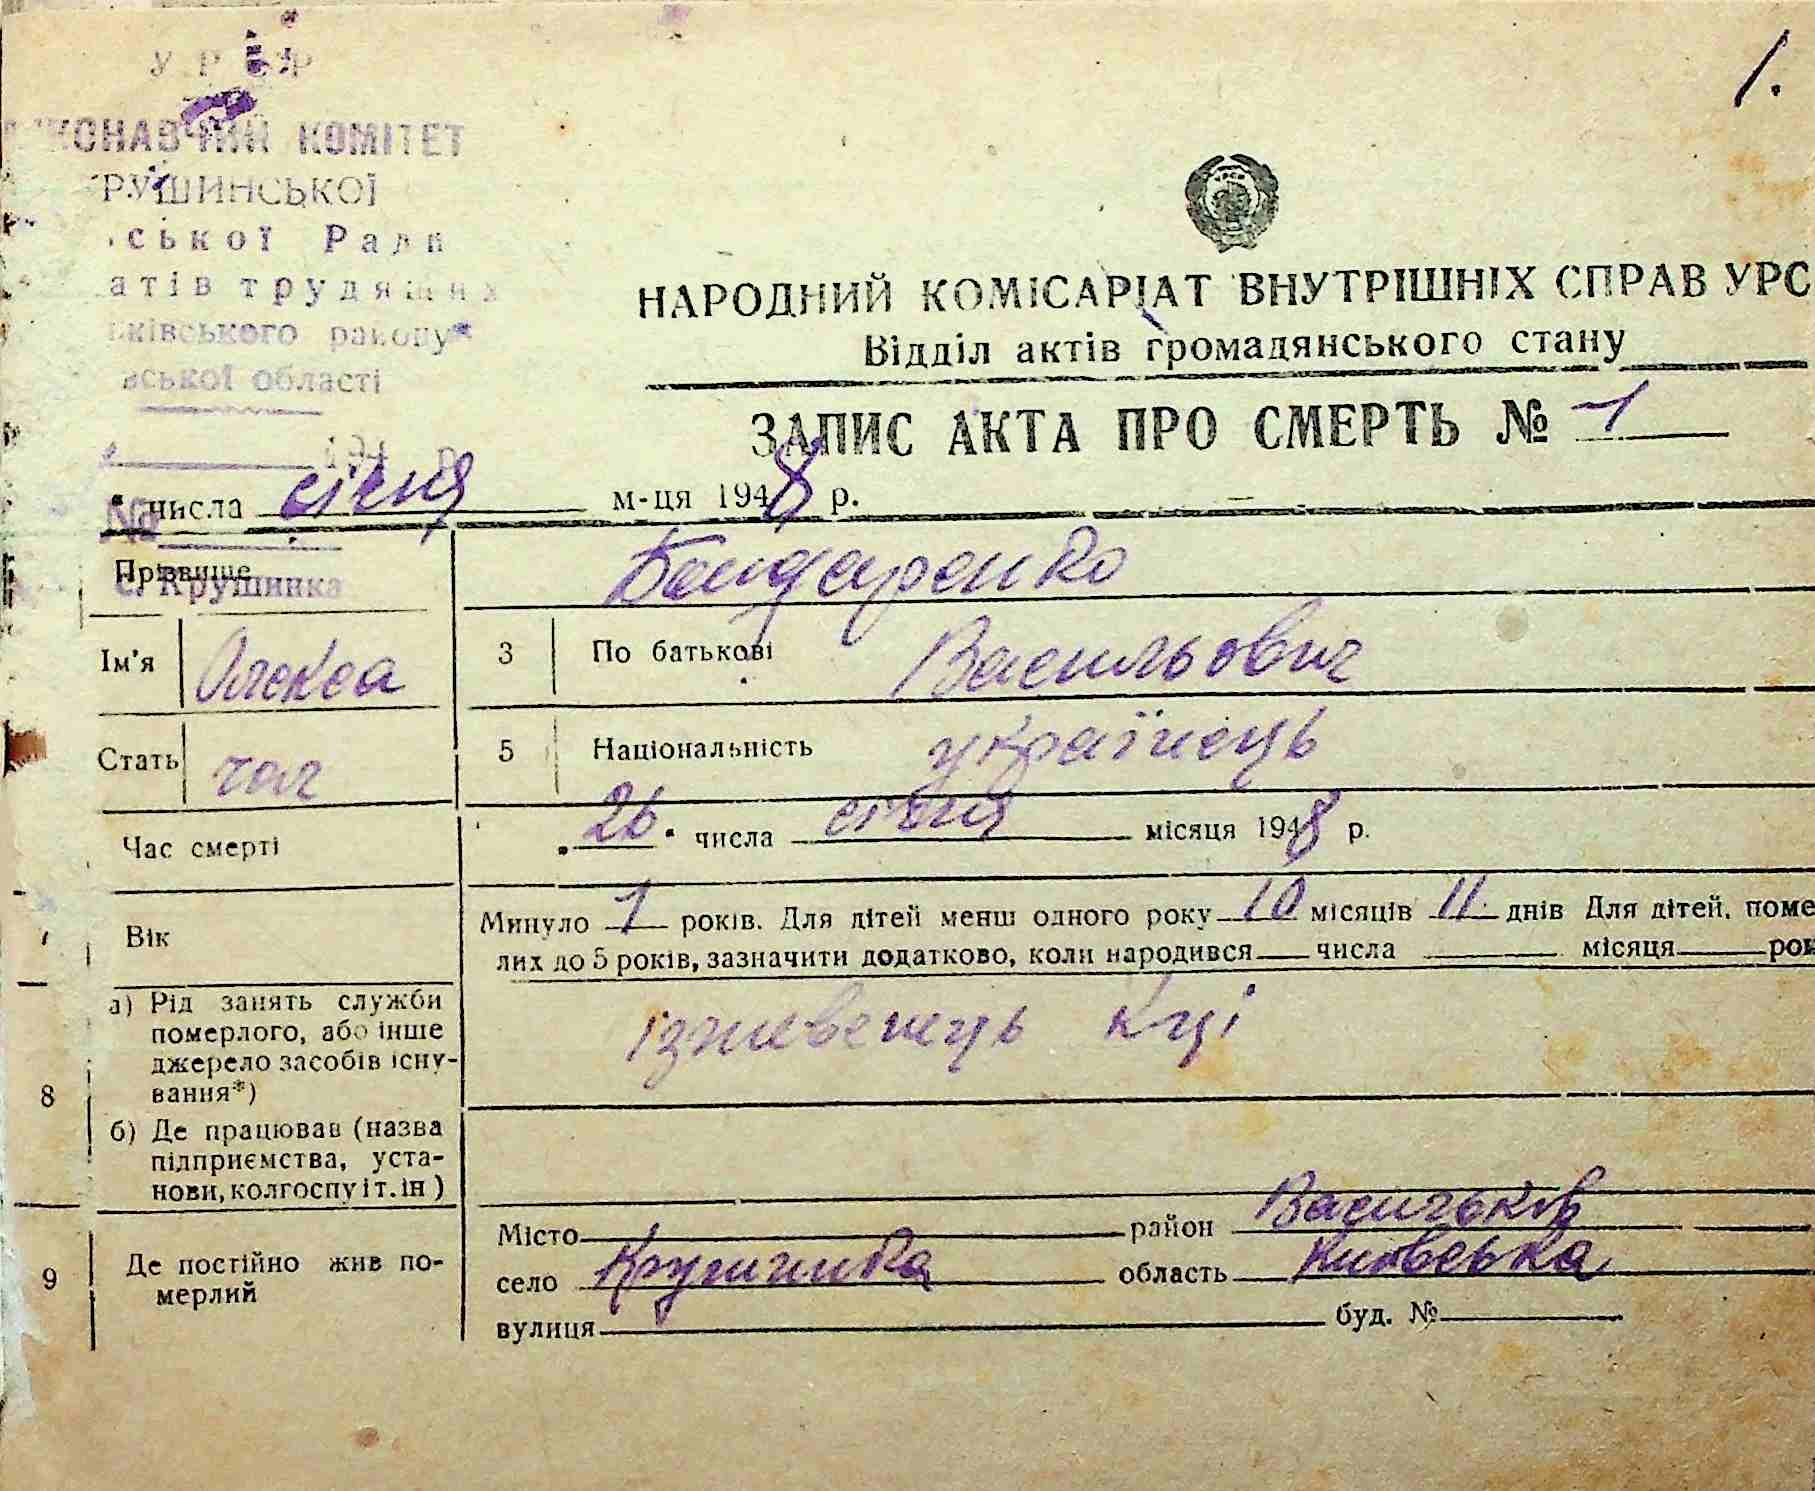 УРСР
КОНАВЧИЙ КОМІТЕТ
РУШИНСЬКОЇ
ської Ради
атів трудящих
ківського району
вської області
194 р
№
с. Крушинка
1.
НАРОДНИЙ КОМІСАРІАТ ВНУТРІШНІХ СПРАВ УРС
Відділ актів громадянського стану
ЗАПИС АКТА ПРО СМЕРТЬ № 1
числа січня м-ця 1948 р.
Прізвище Бондаренко
Ім'я Олекса 3 По батькові Васильович
Стать чол 5 Національність українець
Час смерті 26 числа січня місяця 1948 р.
Вік Минуло 1 років. Для дітей менш одного року 10 місяців 11 днів Для дітей, поме
лих до 5 років, зазначити додатково, коли народився числа місяця рок
8 а) Рід занять служби
померлого, або інше
джерело засобів існу-
вання*)
ізневенець
б) Де працював (назва
підприємства, уста-
нови, колгоспу і т. ін)
9 Де постійно жив по-
мерлий
Місто район Васильків
село Крушинка область Київська
вулиця буд. №